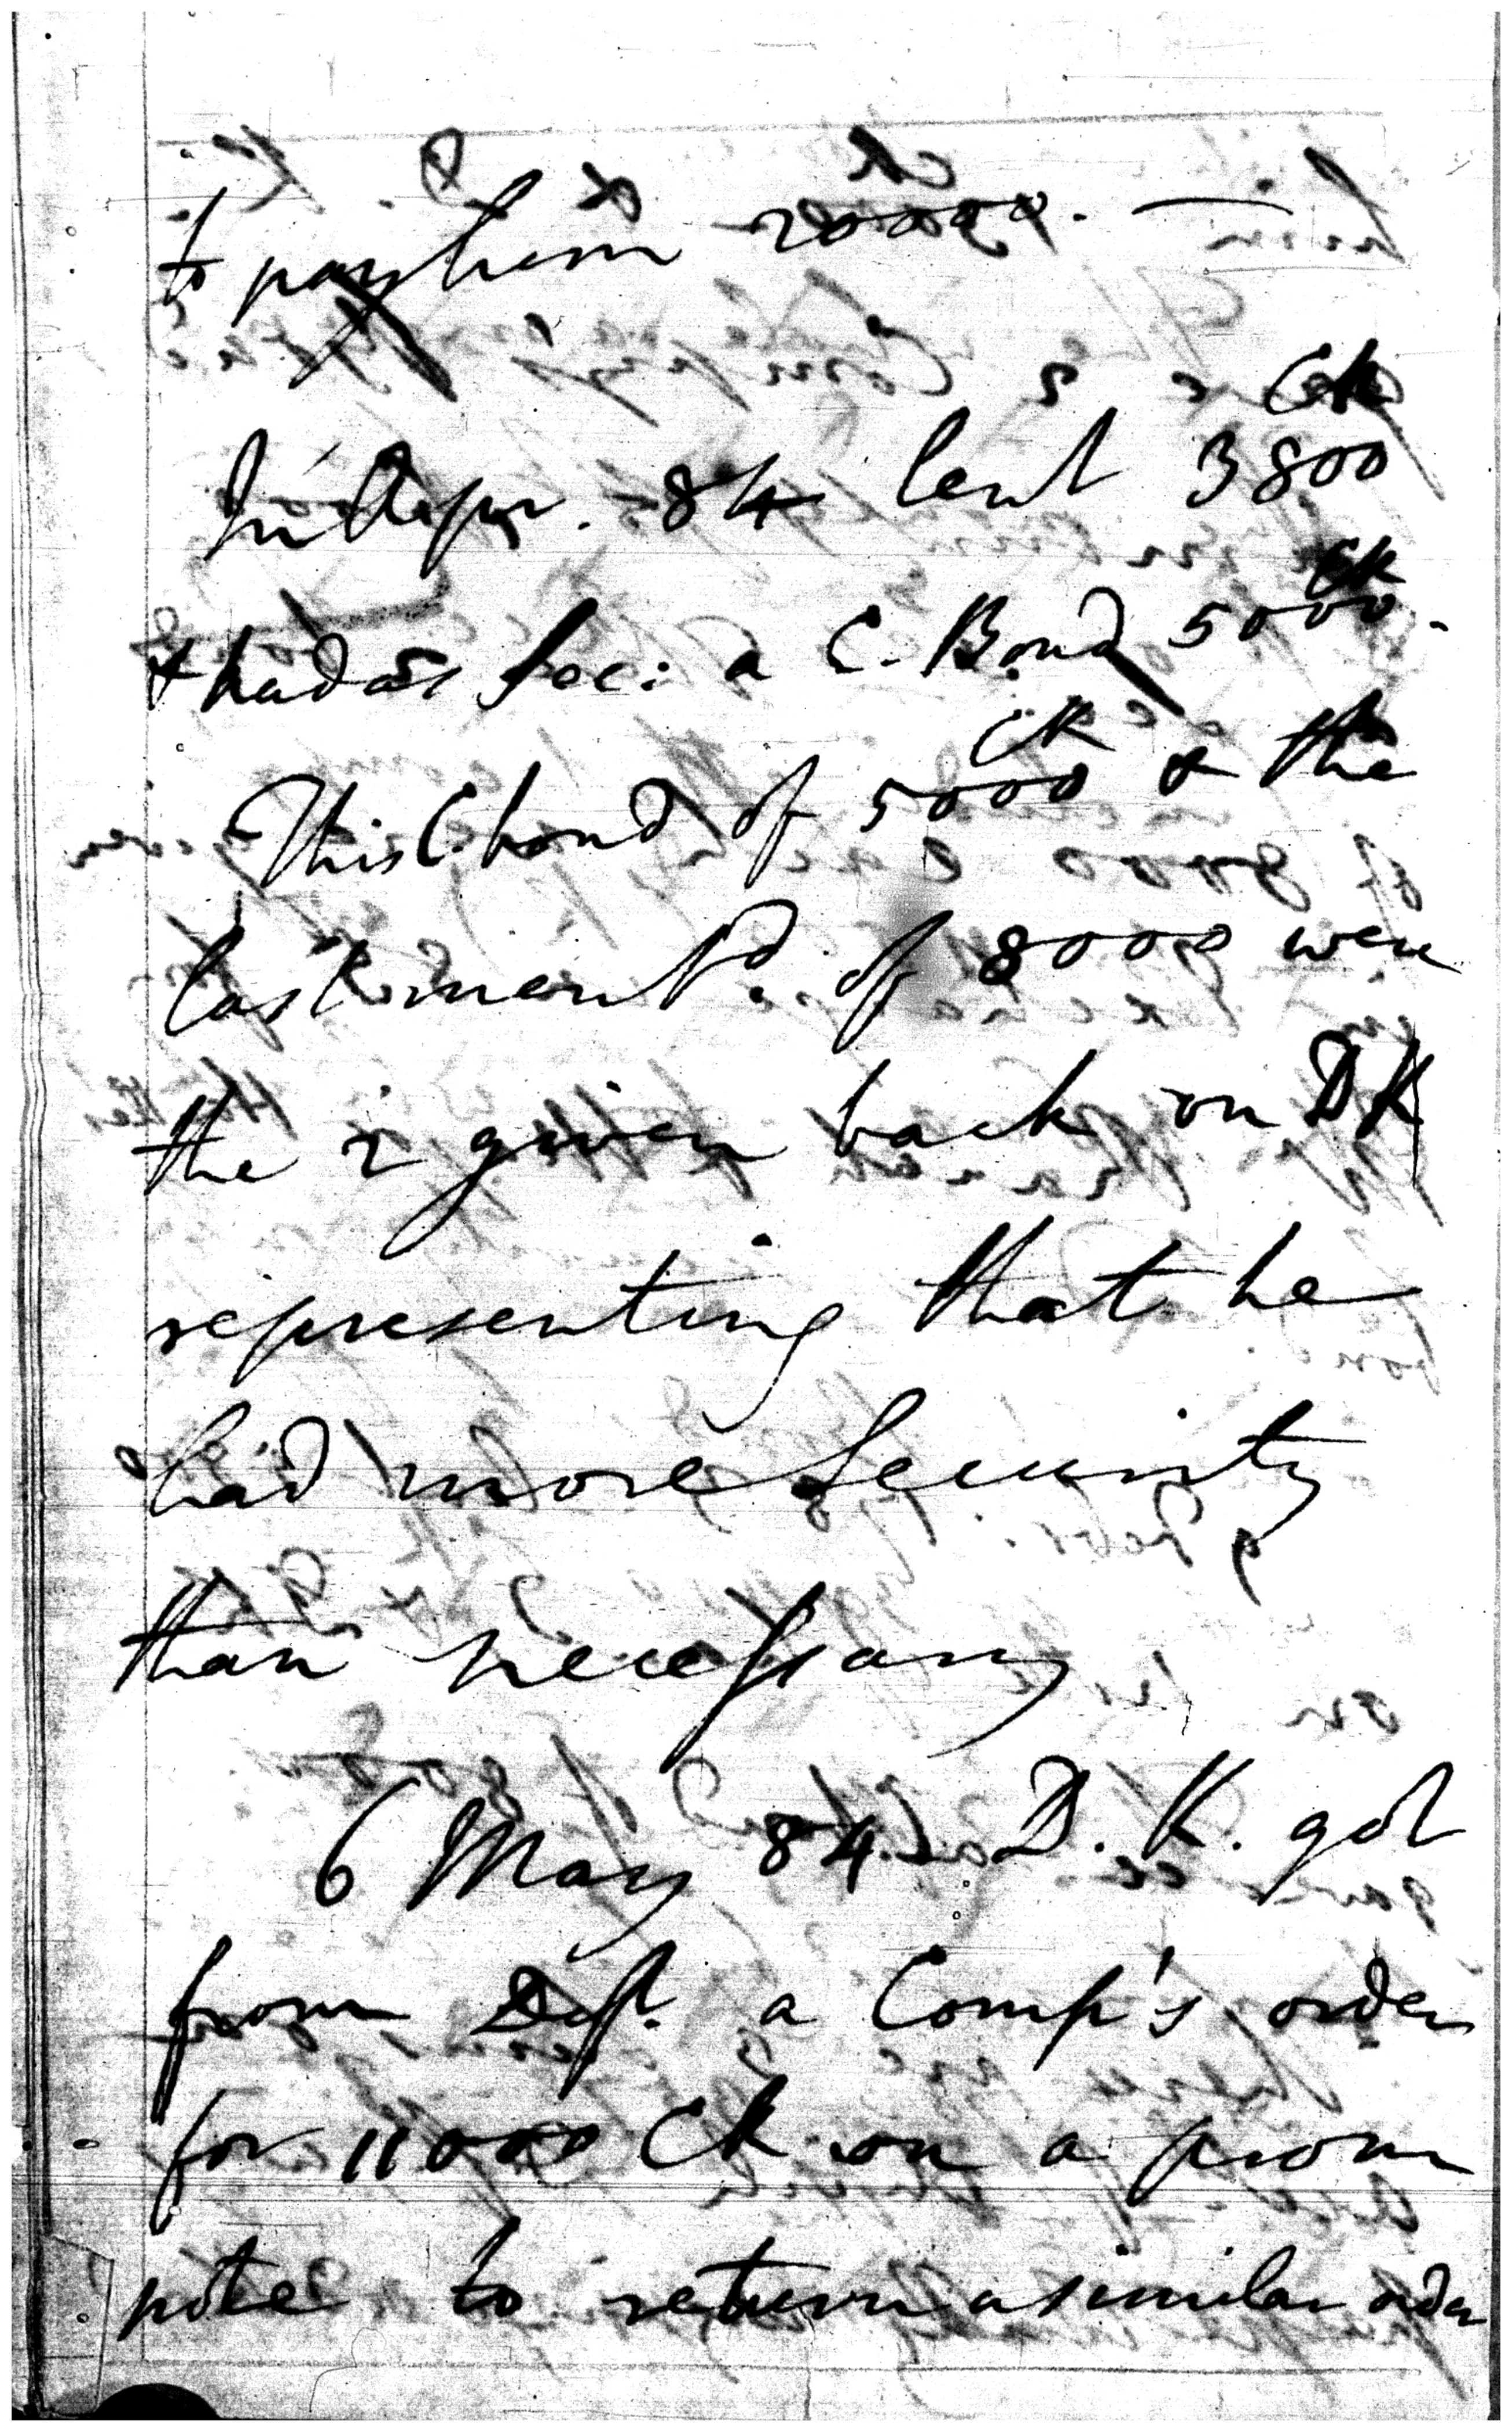 to pay him 20000. —
In Apr. 84 lent 3800 CR
& had as Sec: a C. Bond 5000 CR.
This C. bond of 5000 CR & the
last ment.d of 8000 were
the 2 given back on DK
representing that he
had more Security
than necessary
6 May 84. D. K. got
from Deft. a Comp's order
for 11000 CR on a prom
note to return a similar order